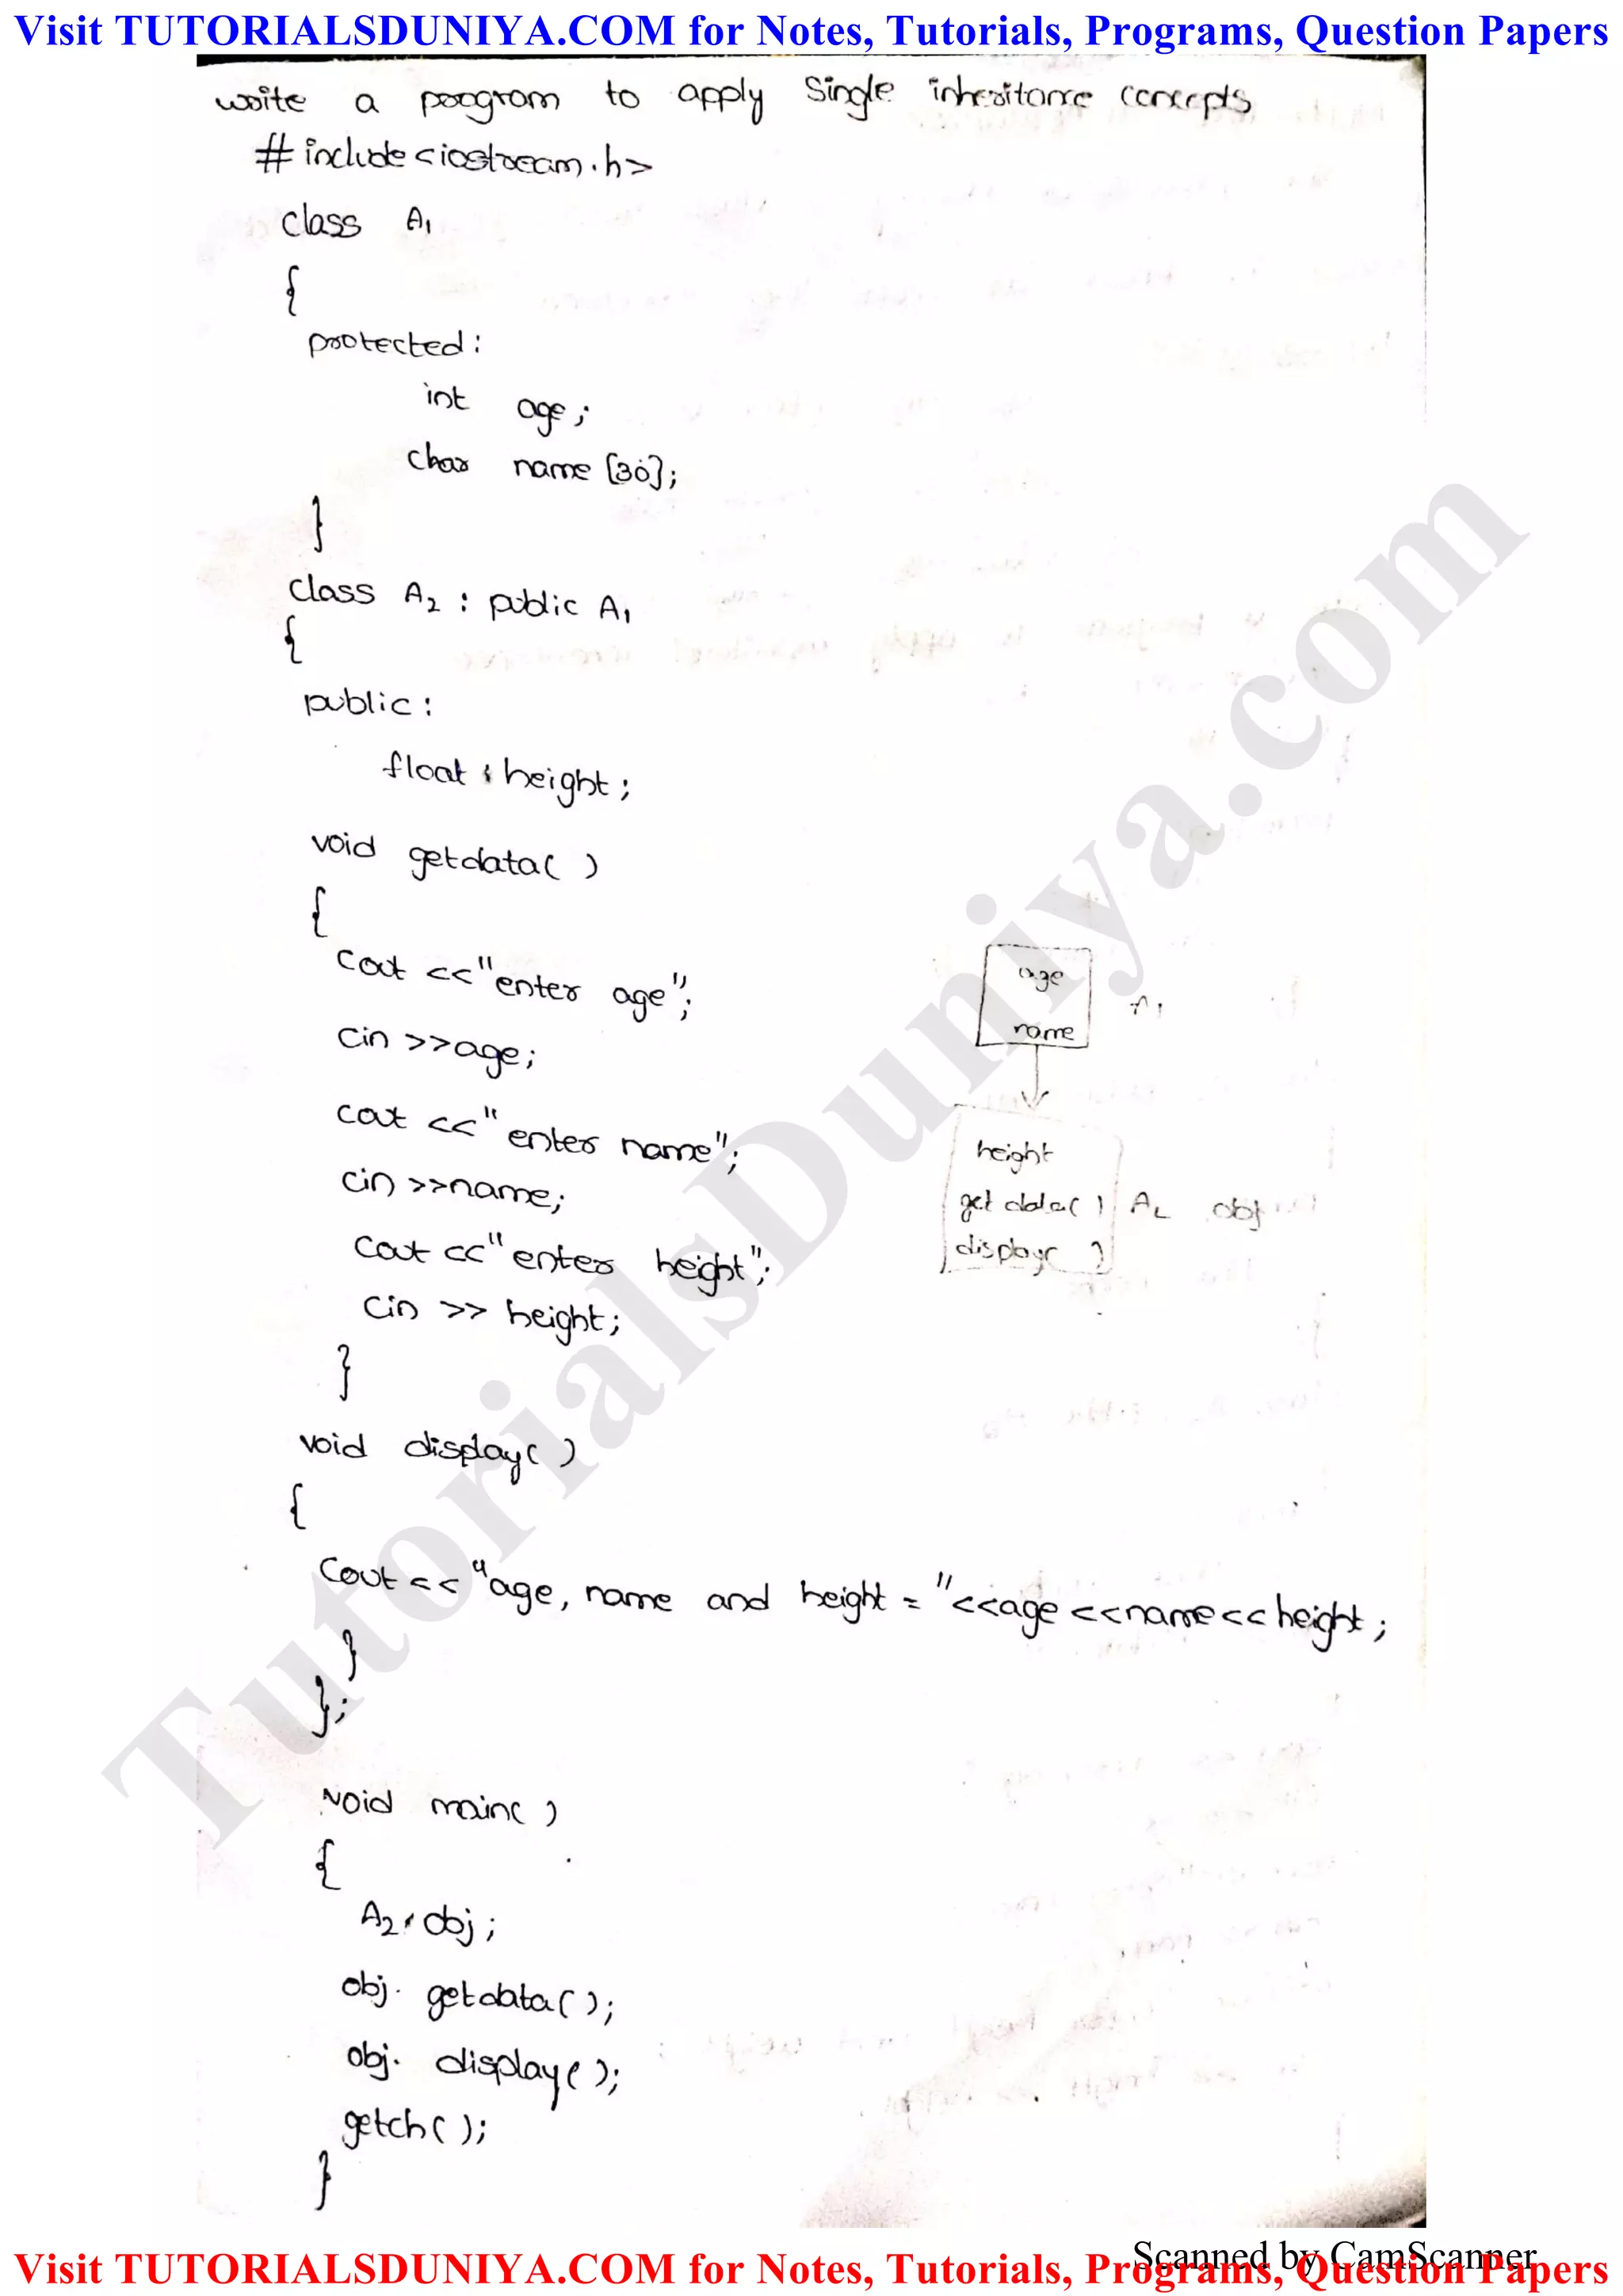 Visit TUTORIALSDUNIYA.COM for Notes, Tutorials, Programs, Question Papers
write a program to apply Single inheritance concepts
#include<iostream.h>
class A1
{
protected:
int age;
char name[30];
}
class A2 : public A1
{
public:
float height;
void getdata( )
{
Cout <<"enter age";
Cin >>age;
cout <<"enter name";
cin >>name;
Cout <<"enter height";
Cin >> height;
}
void display( )
{
Cout<< "age, name and height = "<<age <<name<< height;
}
};
void main( )
{
A2 obj;
obj. getdata( );
obj. display( );
getch( );
}
age
name
A1
height
get data( ) A2 obj
display( )
TutorialsDuniya.com
Scanned by CamScanner
Visit TUTORIALSDUNIYA.COM for Notes, Tutorials, Programs, Question Papers